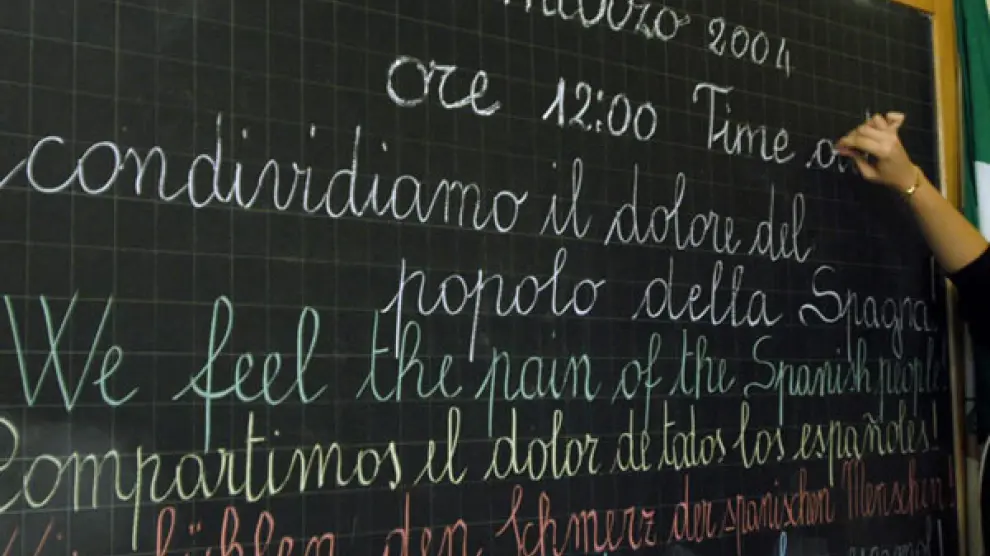 marzo 2004
ore 12:00 Time out
condividiamo il dolore del
popolo della Spagna!
We feel the pain of the Spanish people!
Compartimos el dolor de todos los españoles!
Wir fühlen den Schmerz der spanischen Menschen!